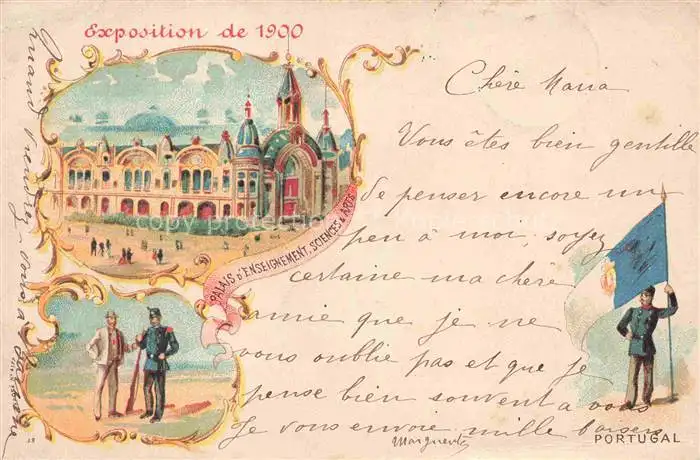 Exposition de 1900
PALAIS D'ENSEIGNEMENT, SCIENCES & ARTS
Chère Maria
Vous êtes bien gentille
de penser encore un
peu à moi, soyez
certaine ma chère
amie que je ne
vous oublie pas et que je
pense bien souvent a vous
Je vous envoie mille baisers
Marguerite
PORTUGAL